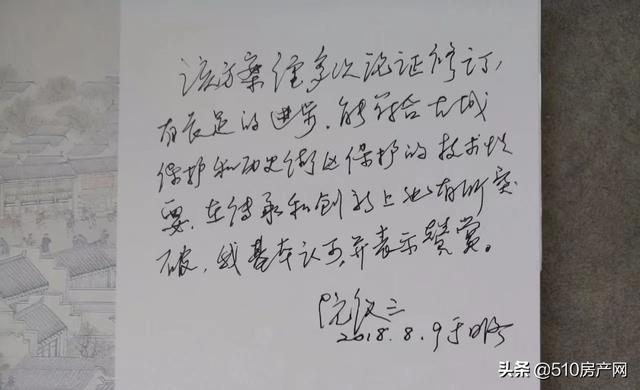 该方案经多次论证修订,
有长足的进步，能符合古城
保护和历史街区保护的技术性
要,在传承和创新上也有所突
破，我基本认可,并表示赞赏。
阮仪三
2018.8.9于
头条 @510房产网